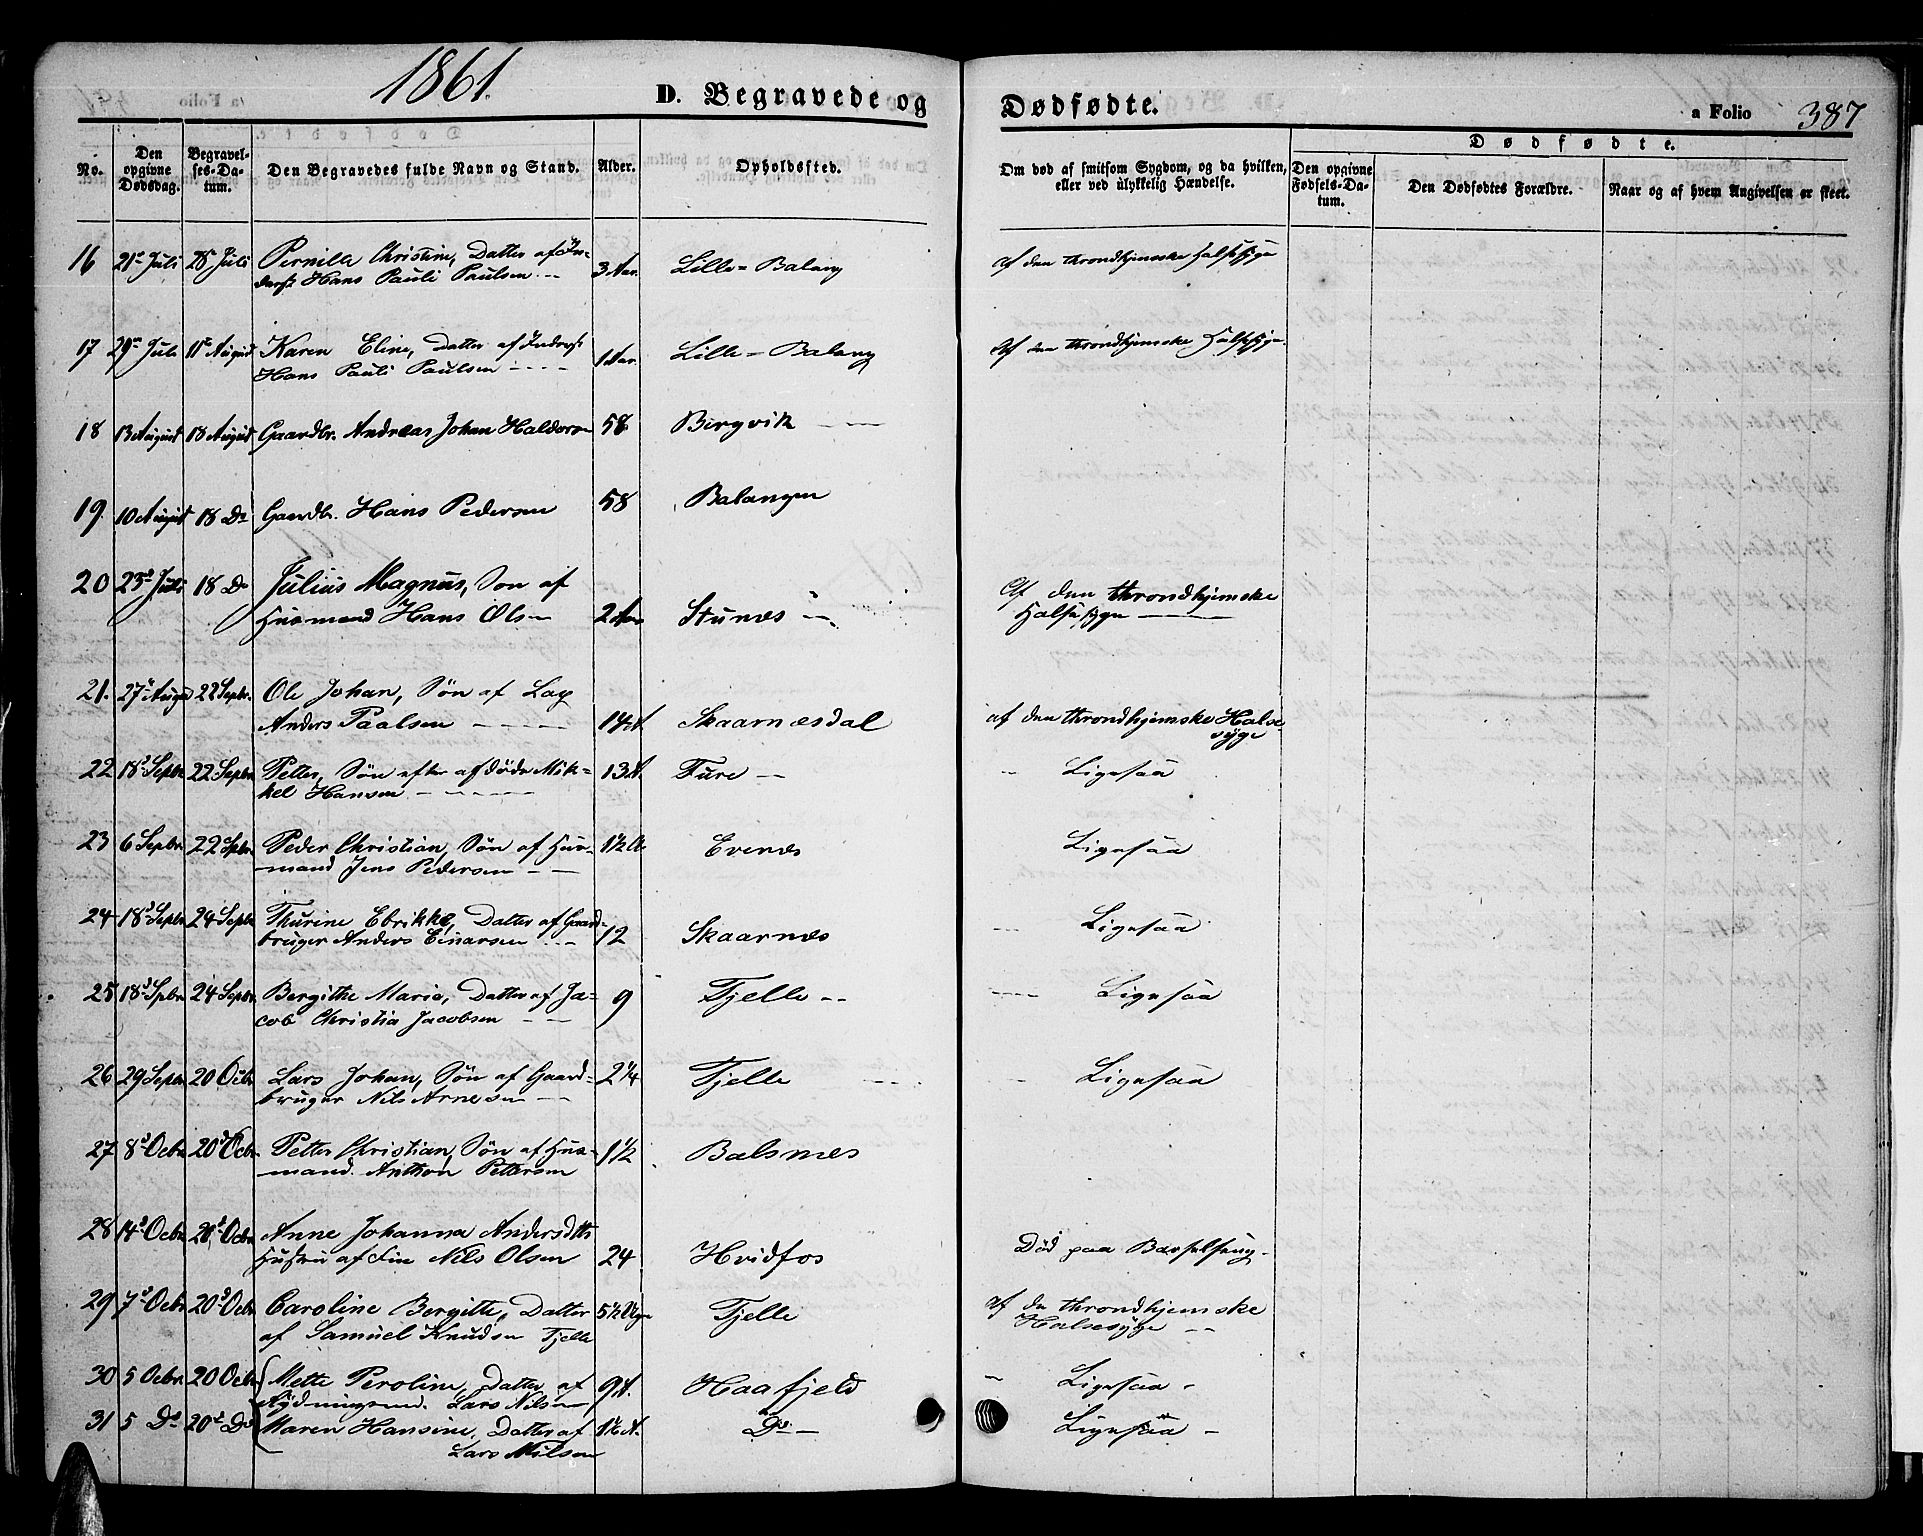 1861.
D. Begravede og Dødfødte.
a Folio 387
No.
Den opgivne Dødsdag.
Begravelses-Datum.
Den Begravedes fulde Navn og Stand.
Alder.
Opholdssted.
Om død af smitsom Sygdom, og da hvilken, eller ved ulykkelig Hændelse.
Dødfødte.
Den opgivne Fødsels-Datum.
Den Dødfødtes Forældre.
Naar og af hvem Angivelsen er skeet.
16 21 Juli 28 Juli Pernilla Christine, Datter af Inderst Hans Pauli Paulsen 3 Aar. Lille-Balang Af den throndhjemske Halssyge
17 29 Juli 11 August Karen Eline, Datter af Inderst Hans Pauli Paulsen 1 Aar. Lille-Balang Af den throndhjemske Halssyge
18 13 August 18 August Gaardbr. Andreas Johan Haldorsen 58 Bergvik
19 10 August 18 Do Gaardbr. Hans Pedersen 58 Balangen
20 23 Juli 18 Do Julius Magnus, Søn af Husmand Hans Olsen 2 Aar Stunæs Af den throndhjemske Halssyge
21. 27 August 22 Sepbr. Ole Johan, Søn af Lap Anders Paalsen Skaarnæsdal af den throndhjemske Halsesyge
22 18 Sepbr 22 Sepbr Petter, Søn efter afdøde Mikkel Hansen 13 A. Fure Ligesaa
23 6 Sepbr 22 Sepbr Peder Christian, Søn af Husmand Jens Pedersen 1½ Evenæs Ligesaa
24 18 Sepbr 24 Sepbr Thurine Ebrikke, Datter af Gaardbruger Anders Einarsen 12 Skaarnæs Ligesaa
25 18 Spbr 24 Sepbr. Bergithe Marie, Datter af Jacob Christia Jacobsen 9 Tjelle Ligesaa
26 29 Sepbr 20 Octbr Lars Johan, Søn af Gaardbruger Nils Arnesen 2¼ Tjelle Ligesaa
27 8 Ocbr 20 Ocbr. Petter Christian, Søn af Husmand Anthon Pettersen 1½ Balsnes
28 14 Ocbr 20 Ocbr Anne Johanna Andersdtr Hustru af Fin Nils Olsen 24 Hvidfos Død paa Barselseng
29 7 Ocbr 20 Ocbr Caroline Bergitte, Datter af Samuel Knudsen Tjelle 5½ Tjelle af den throndhjemske Halsesyge
30 5 Ocbr 20 Ocbr Mette Peroline, Datter af Rydningsmd. Lars Nilsen 9 A. Haafjeld Ligesaa
31 5 Do 20 Do Maren Hansine, Datter af Lars Nilsen 1½ A. Do Ligesaa